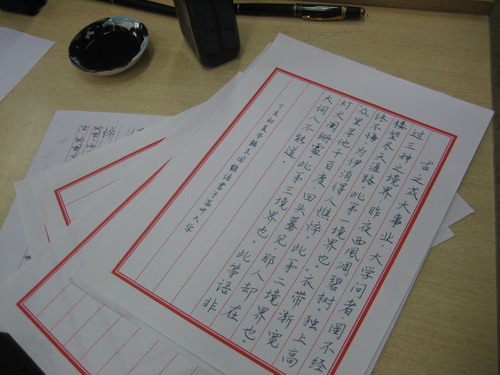 古之成大事业、大学问者，罔不经
过三种之境界：昨夜西風凋碧树，独上高
楼，望尽天涯路，此第一境界也。衣带渐宽
终不悔，为伊消得人憔悴，此第二境界也。
众里寻他千百度，回头蓦见，那人却在
灯火阑珊处，此第三境界也。此等语非
大词人不能道。
丁亥初夏 王国维语书于 州大学